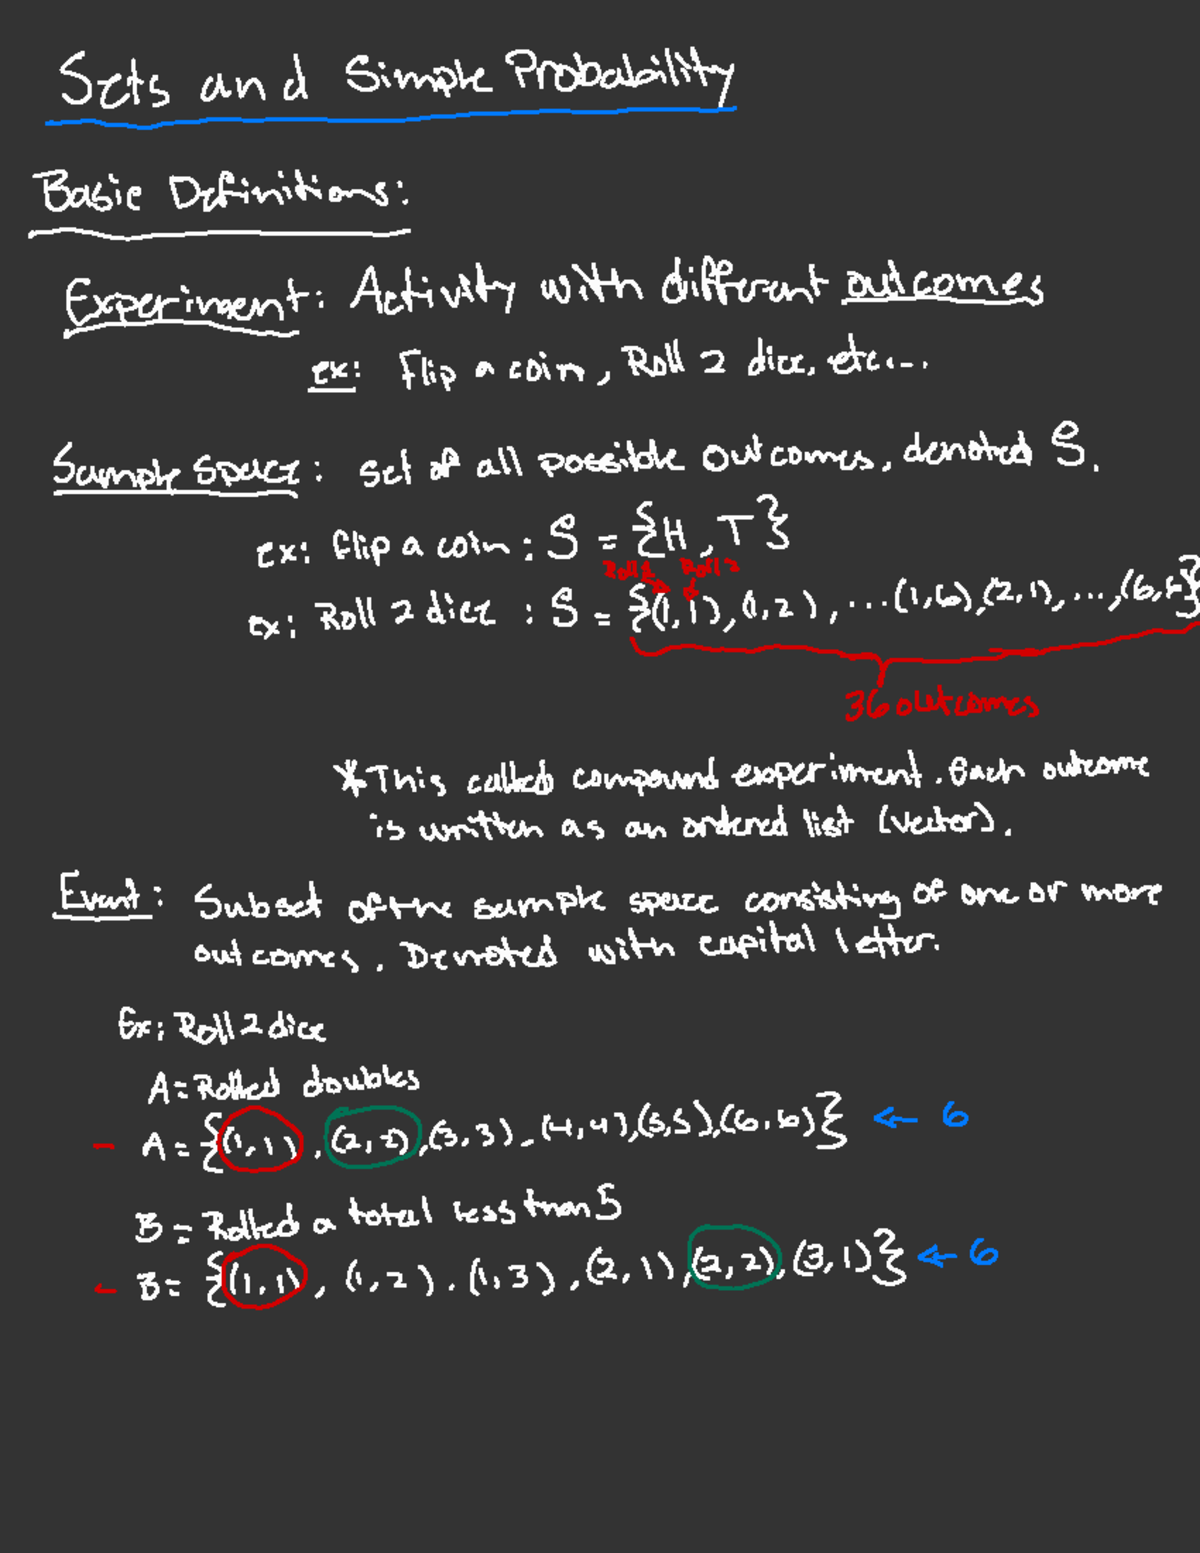 Sets and Simple Probability
Basic Definitions:
Experiment: Activity with different outcomes
ex: Flip a coin, Roll 2 dice, etc...
Sample Space: set of all possible outcomes, denoted S.
ex: flip a coin: S = {H, T}
Roll 1 Roll 2
ex: Roll 2 dice : S = {(1,1), (1,2), ...(1,6),(2,1),...,(6,6)}
36 outcomes
*This called compound experiment. Each outcome
is written as an ordered list (vector).
Event: Subset of the sample space consisting of one or more
outcomes. Denoted with capital letter.
Ex: Roll 2 dice
A = Rolled doubles
- A = {(1,1), (2,2), (3,3), (4,4), (5,5), (6,6)} ← 6
B = Rolled a total less than 5
- B = {(1,1), (1,2), (1,3), (2,1), (2,2), (3,1)} ← 6